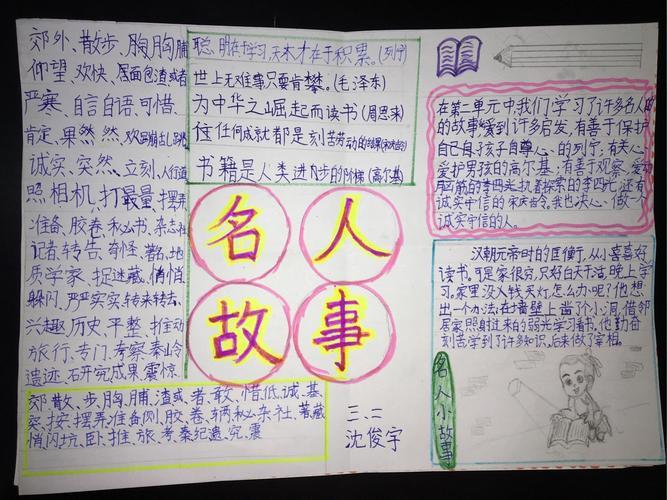 郊外、散步、胸、胸脯
仰望、欢快、屑面包渣或者
严寒、自言自语、可惜、
肯定、果然、然、欢蹦乱跳
诚实、突然、立刻、人行道
照相机、打量、摆弄
准备、胶卷、秘书、杂志社
记者、转告、奇怪、著名、地
质学家、捉迷藏、悄悄
躲闪、严严实实、转来转去、
兴趣、历史、平整、推动
旅行、专门、考察、秦岭
遗迹、研究成果、震惊
郊、散、步、胸、脯、渣、或、者、敢、惜、低、诚、基、
突、按、摆弄、准备、例、胶、卷、辆、秘、杂、社、著、藏
悄、闪、坑、卧、推、旅、考、秦、纪、遗、究、震
聪明在于学习,天才在于积累。(列宁)
世上无难事,只要肯攀。(毛泽东)
为中华之崛起而读书(周恩来)
任何成就都是刻苦劳动的结果(宋庆龄)
书籍是人类进步的阶梯(高尔基)
名人
故事
三、二
沈俊宇
在第二单元中,我们学习了许多名人
的故事,受到许多启发,有善于保护
自己自孩子自尊心、的列宁,有关心
爱护男孩的高尔基;有善于观察,爱动
脑筋的李四光,执着探索的李四光,还有
诚实守信的宋庆龄。我也决心、做一个
诚实守信的人。
汉朝元帝时的匡衡,从小喜喜好
读书。可是家很穷,只好白天干活,晚上学
习。家里没人钱买灯,怎么办呢?他想
出一个办法,在墙壁上凿了个小洞,借邻
居家照射过来的弱光学习看书。他勤奋
刻苦学到了许多知识,后来做了宰相。
名人小故事